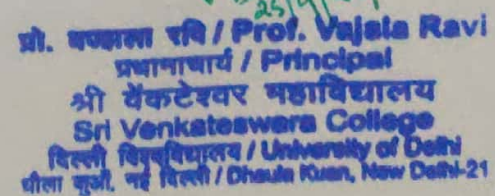 25/9/
प्रो. वज्जाला रवि / Prof. Vajala Ravi
प्रधानाचार्य / Principal
श्री वेंकटेश्वर महाविद्यालय
Sri Venkateswara College
दिल्ली विश्वविद्यालय / University of Delhi
धौला कुआँ, नई दिल्ली / Dhaula Kuan, New Delhi-21